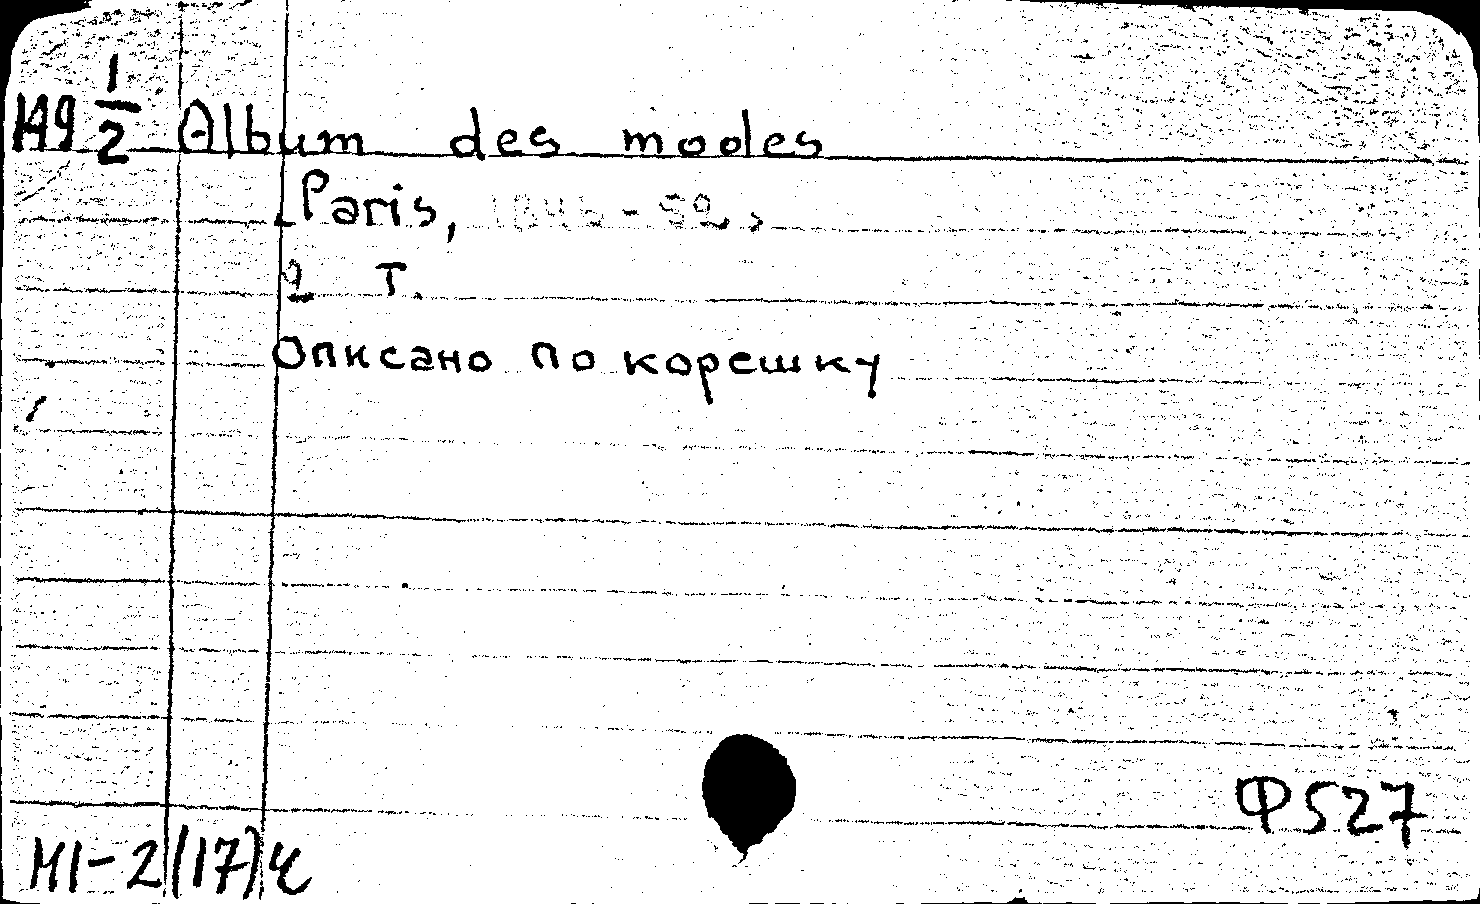 И9 1/2 Album des modes
Paris, 1846-52,
2 т.
Описано по корешку
Ф527